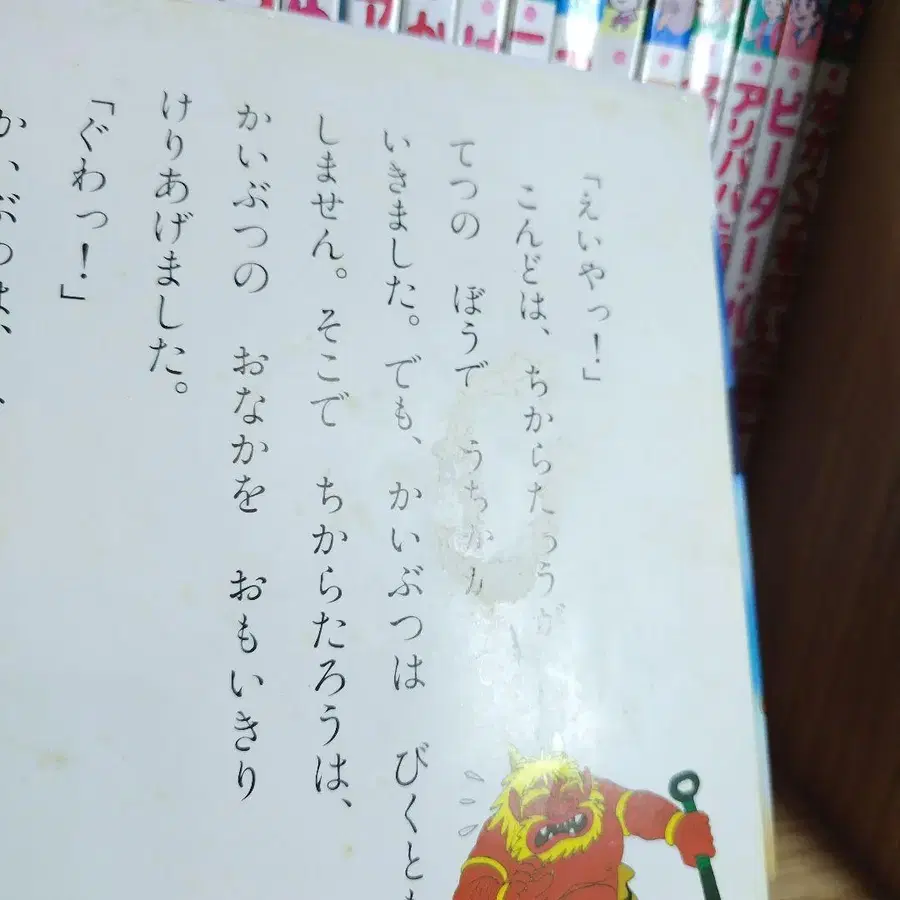 「えいやっ!」
こんどは、ちからたろうが
てつの ぼうで うちか
いきました。でも、かいぶつは びくとも
しません。そこで ちからたろうは、
かいぶつの おなかを おもいきり
けりあげました。
「ぐわっ!」
かいぶつは、
ピーター・パ
アリババと